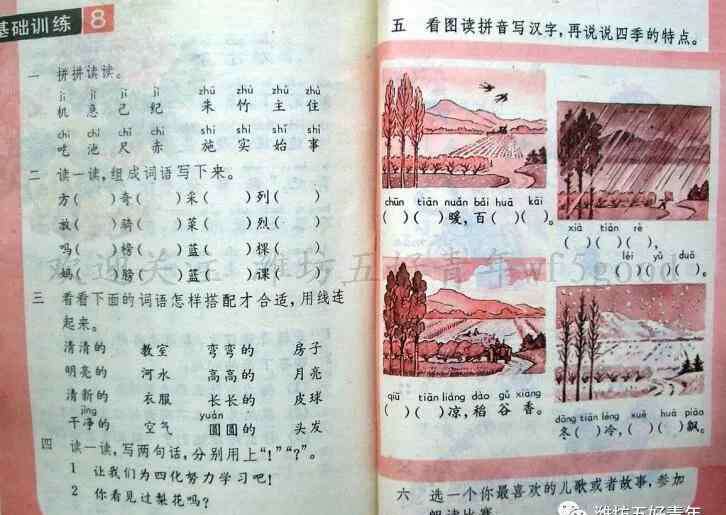 基础训练 8
一 拼拼读读。
jī jí jǐ jì zhū zhú zhǔ zhù
机 急 己 纪 朱 竹 主 住
chī chí chǐ chì shī shí shǐ shì
吃 池 尺 赤 施 实 始 事
二 读一读,组成词语写下来。
方( ) 奇( ) 采( ) 列( )
放( ) 骑( ) 菜( ) 烈( )
吗( ) 榜( ) 蓝( ) 棵( )
妈( ) 膀( ) 篮( ) 课( )
三 看看下面的词语怎样搭配才合适,用线连
起来。
清清的 教室 弯弯的 房子
明亮的 河水 高高的 月亮
清新的 衣服 长长的 皮球
jìng yuán
干净的 空气 圆圆的 头发
四 读一读,写两句话,分别用上“!”“?”。
1 让我们为四化努力学习吧!
2 你看见过梨花吗?
五 看图读拼音写汉字,再说说四季的特点。
chūn tiān nuǎn bǎi huā kāi
( )( )暖,百( )( )。
xià tiān rè
( )( )( ),
léi yǔ duō
( )( )( )。
qiū tiān liáng dào gǔ xiāng
( )( )凉,稻谷香。
dōng tiān lěng xuě huā piāo
冬( )冷,( )( )飘。
六 选一个你最喜欢的儿歌或者故事,参加
朗读比赛。
欢迎关注 潍坊五好青年wf5good
潍坊五好青年